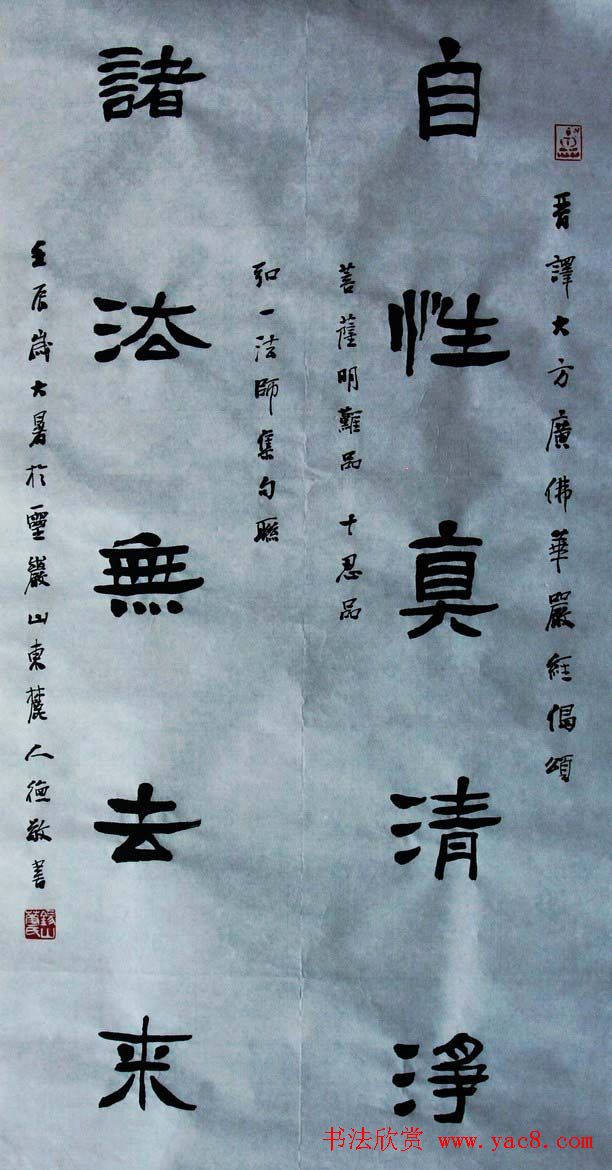 晋譯大方廣佛華嚴经偈頌
自性真清淨
菩薩明難品 十忍品
弘一法師集句聯
諸法無去来
壬辰歲大暑於靈巖山東麓人德敬書
书法欣赏 www.yac8.com